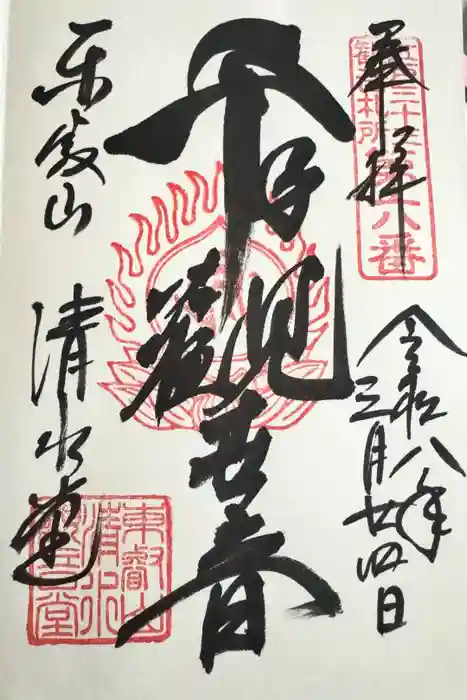 奉拝
江戸三十三
観音札所
第六番
令和八年
三月廿四日
千手觀世音
東叡山
清水堂
東叡山
清水
観音堂